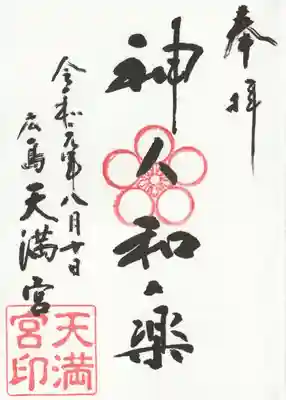 奉拝
神人和楽
令和元年八月十日
広島天満宮
天満宮印